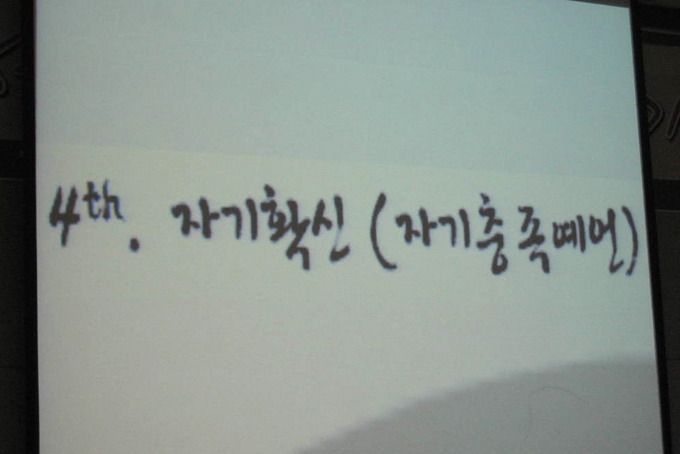 4th. 자기확신 (자기충족예언)